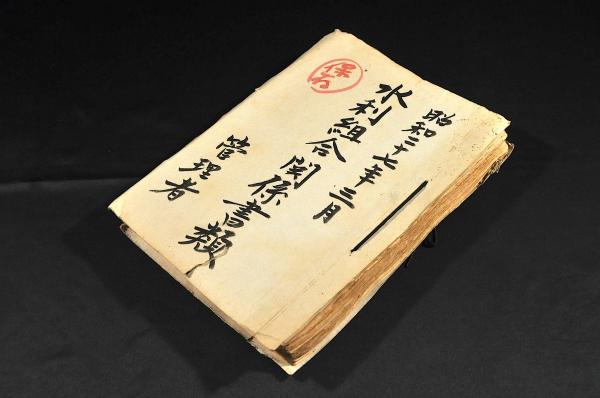 昭和二十七年三月
水利組合関係書類
管理者
保存